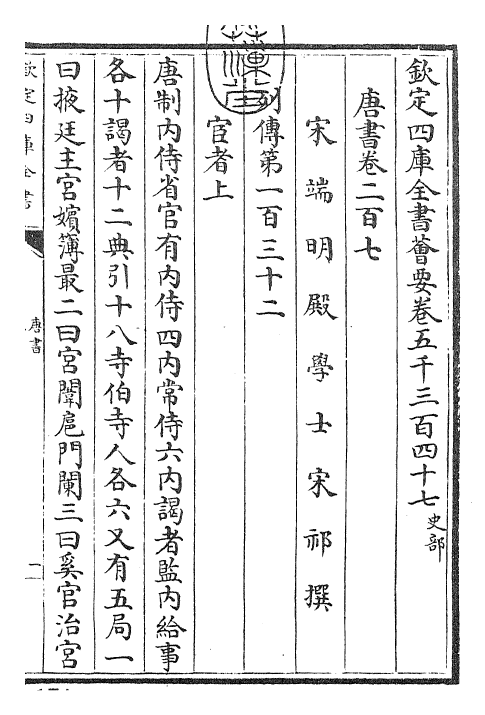 欽定四庫全書薈要卷五千三百四十七 史部
唐書卷二百七
宋端明殿學士宋祁撰
列傳第一百三十二
宦者上
唐制内侍省官有内侍四内常侍六内謁者監内給事
各十謁者十二典引十八寺伯寺人各六又有五局一
曰掖廷主宮嬪簿最二曰宮闈扈門闌三曰奚官治宮
欽定四庫全書
唐書